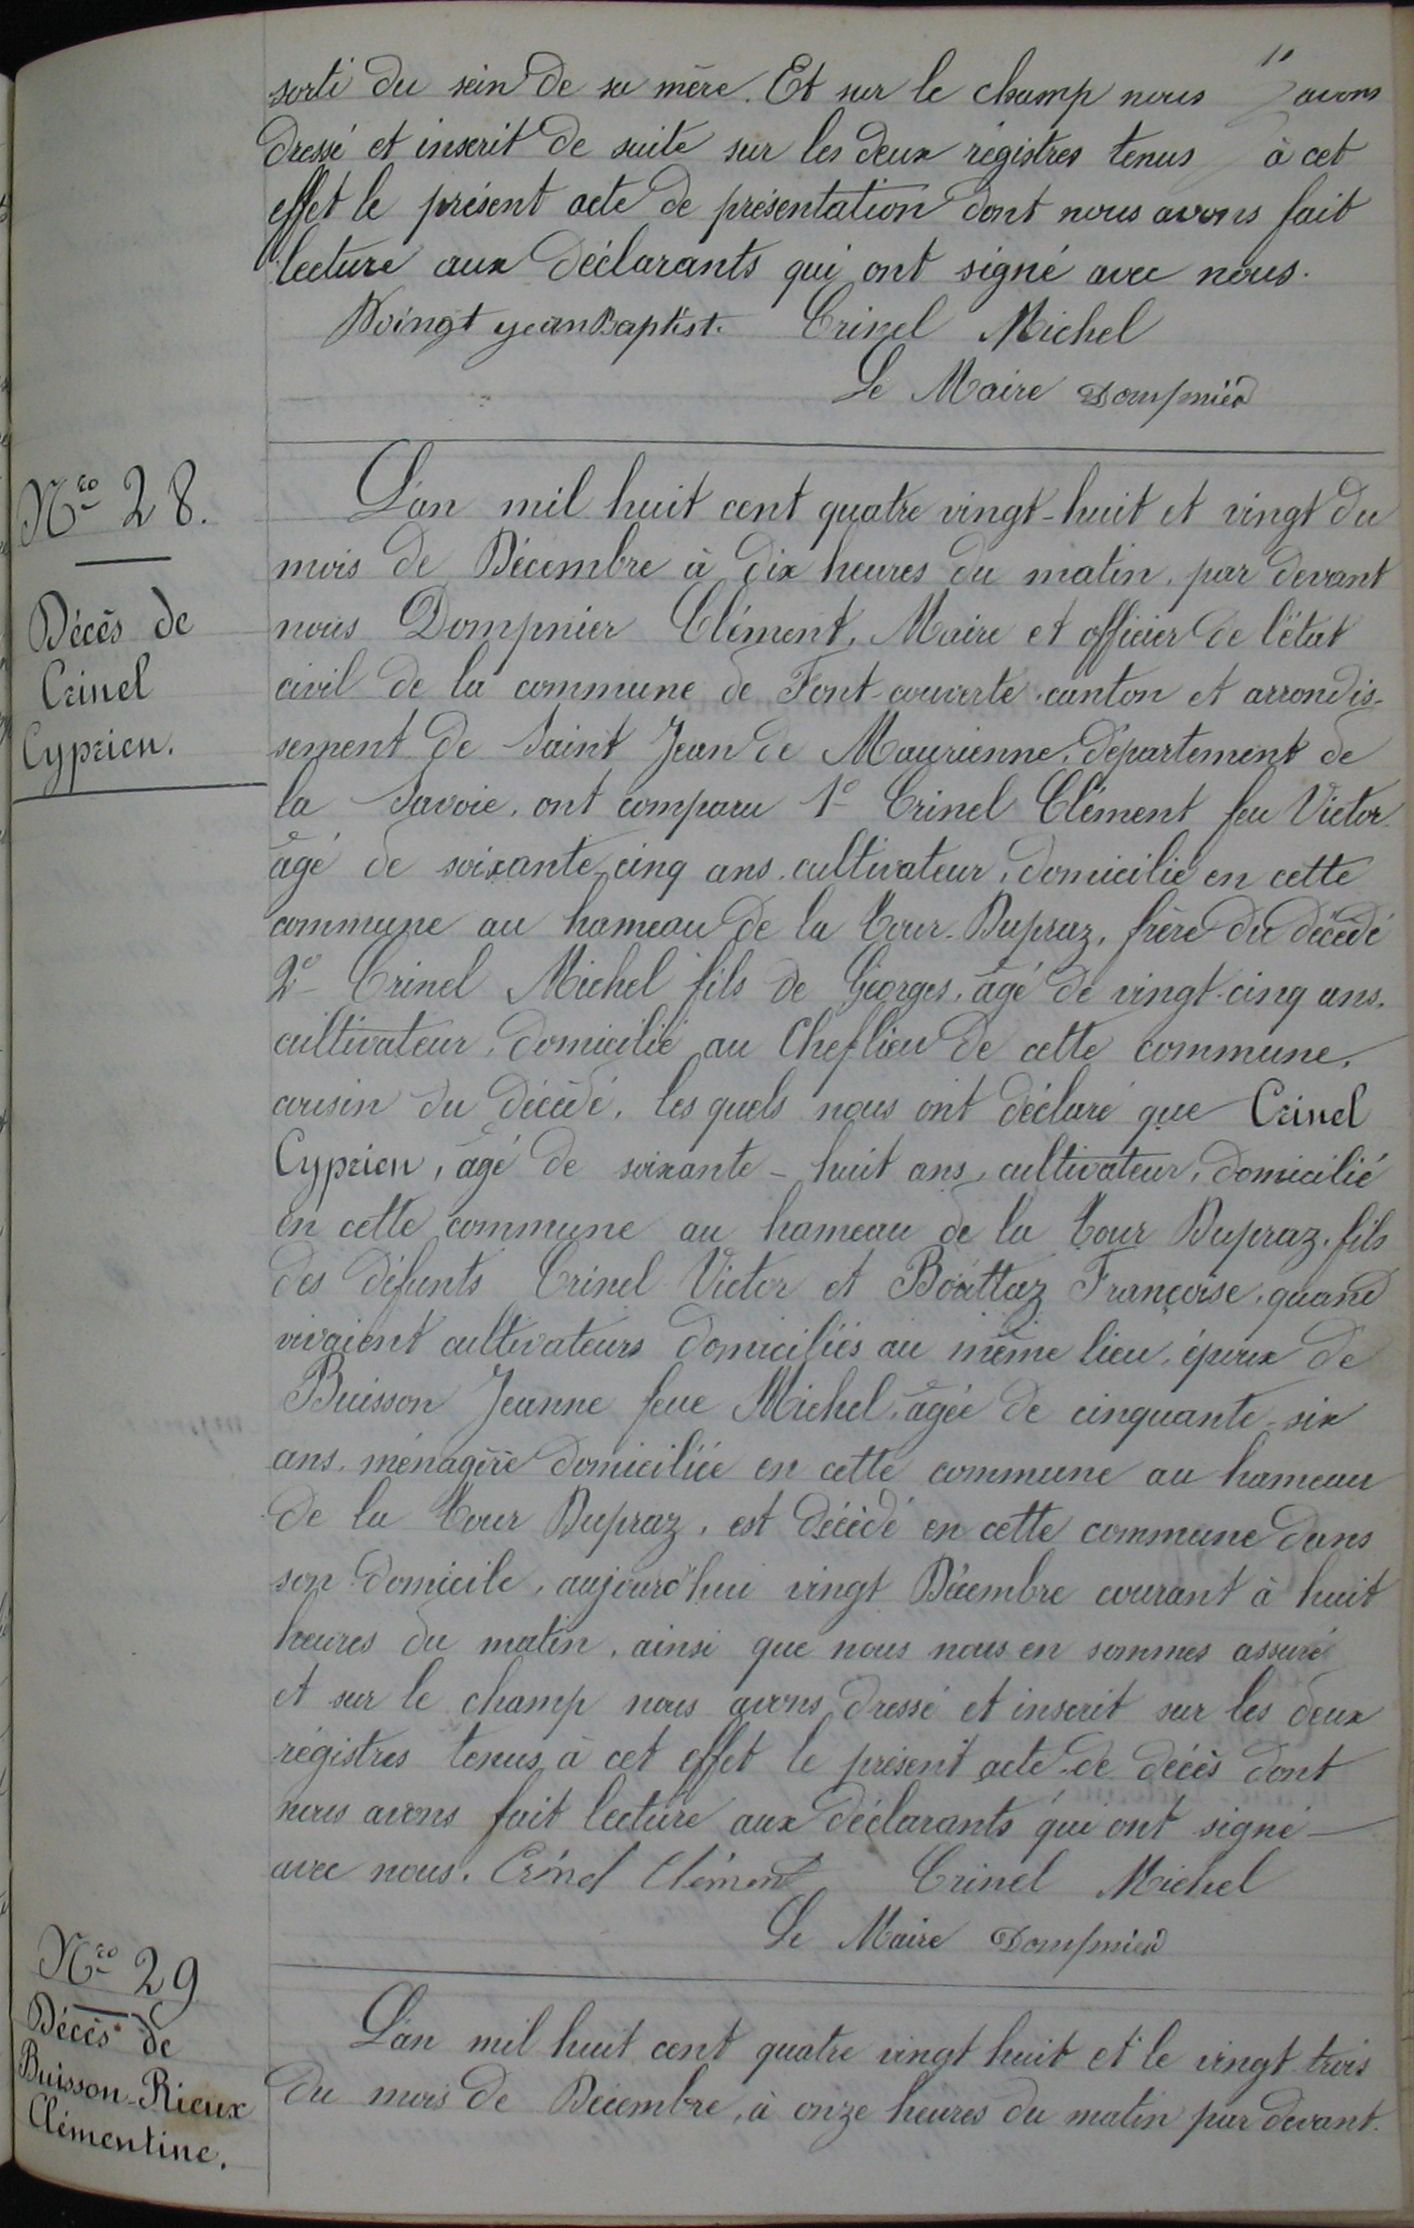 sorti du sein de sa mère. Et sur le champ nous avons
dressé et inscrit de suite sur les deux régistres tenus à cet
effet le présent acte de présentation dont nous avons fait
lecture aux déclarants qui ont signé avec nous.
Doingt jean Baptist. Crinel Michel
Le Maire Dompnier
Nro 28.
Décès de
Crinel
Cyprien.
L'an mil huit cent quatre vingt-huit et vingt du
mois de Décembre à dix heures du matin, par devant
nous Dompnier Clément, Maire et officier de l'état
civil de la commune de Font-couverte canton et arrondis-
sement de Saint Jean de Maurienne, département de
la Savoie, ont comparu 1º Crinel Clément feu Victor
âgé de soixante-cinq ans, cultivateur, domicilié en cette
commune au hameau de la Cour-Dupraz, frère du décédé
2º Crinel Michel fils de Georges, âgé de vingt-cinq ans,
cultivateur, domicilié au Cheflieu de cette commune,
cousin du décédé, les quels nous ont déclaré que Crinel
Cyprien, âgé de soixante-huit ans, cultivateur, domicilié
en cette commune au hameau de la Cour Dupraz, fils
des défunts Crinel Victor et Bouttaz Françoise, quand
vivaient cultivateurs domiciliés au même lieu, époux de
Buisson Jeanne feue Michel, âgée de cinquante-six
ans, ménagère domiciliée en cette commune au hameau
de la Cour Dupraz, est décédé en cette commune dans
son domicile, aujourd'hui vingt Décembre courant à huit
heures du matin, ainsi que nous nous en sommes assuré
et sur le champ nous avons dressé et inscrit sur les deux
régistres tenus à cet effet le présent acte de décès dont
nous avons fait lecture aux déclarants qui ont signé
avec nous. Crinel Clément Crinel Michel
Le Maire Dompnier
Nro 29
Décès de
Buisson-Rieux
Clémentine.
L'an mil huit cent quatre vingt huit et le vingt trois
du mois de Décembre, à onze heures du matin par devant